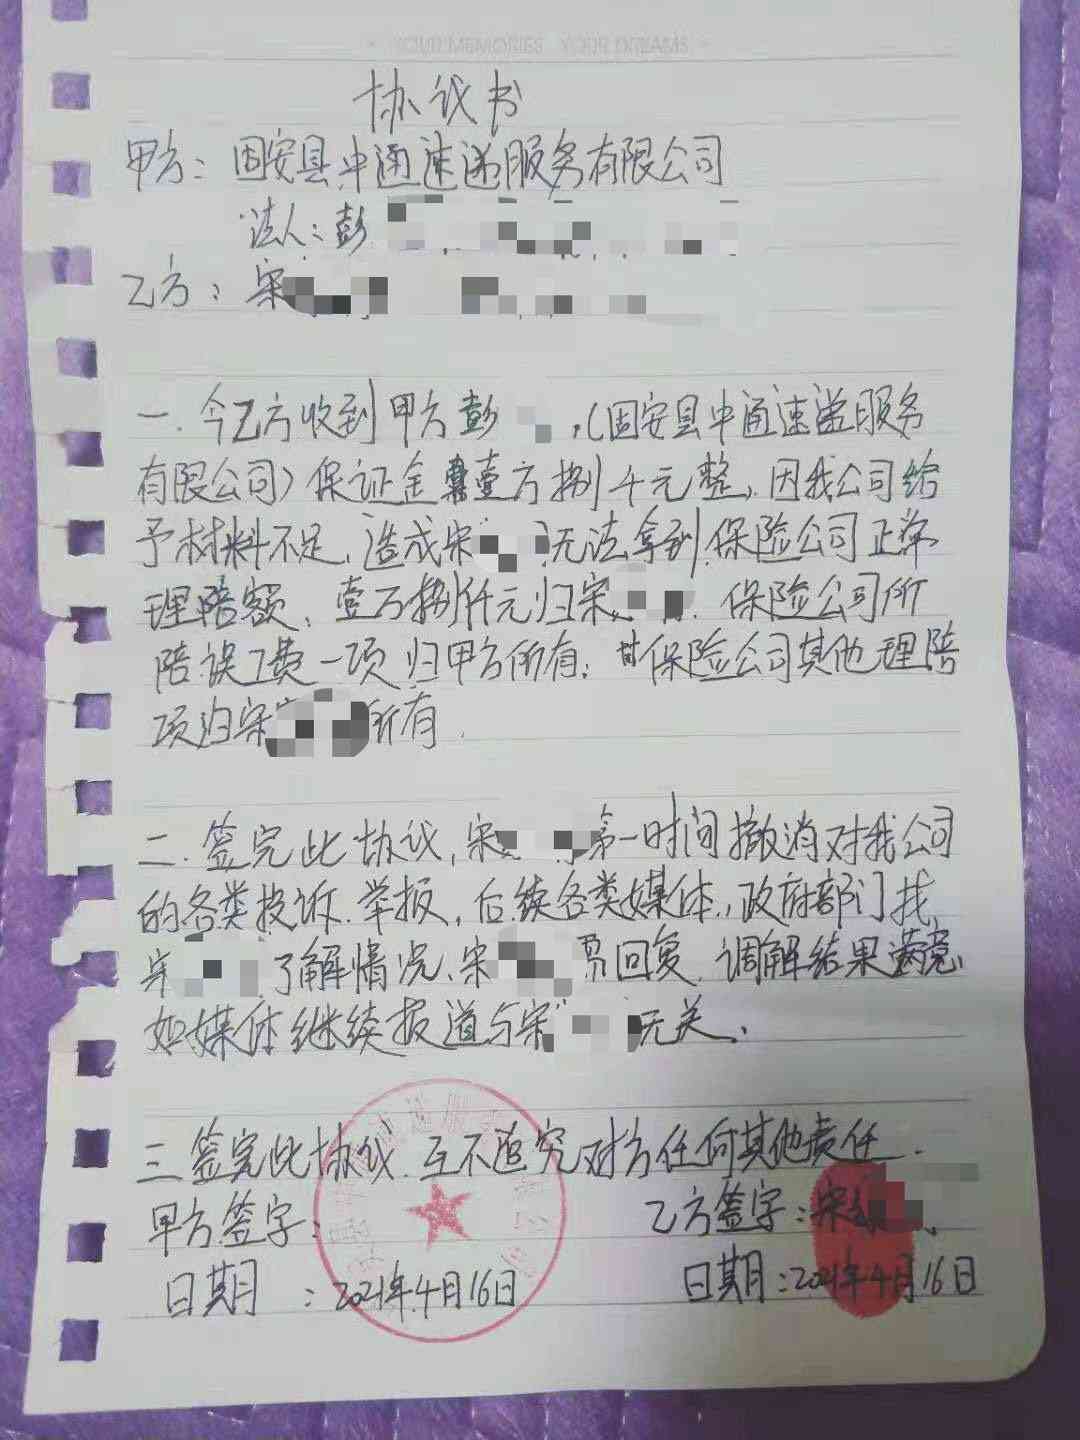 YOUR MEMORIES YOUR DREAMS
协议书
甲方：固安县中通速递服务有限公司
法人：彭
乙方：宋
一.今乙方收到甲方彭 ,(固安县中通速递服务
有限公司)保证金壹万捌千元整,因我公司给
予材料不足,造成宋 无法拿到保险公司正常
理陪额、壹万捌仟元归宋 .保险公司所
陪误工费一项归甲方所有；保险公司其他理陪
项归宋 所有.
二.签完此协议,宋 第一时间撤消对我公司
的各类投诉.举报,后续各类媒体,政府部门找
宋 了解情况、宋 回复.调解结果满意、
如媒体继续报道与宋 无关.
三.签完此协议.互不追究对方任何其他责任.
甲方签字：
乙方签字：宋
日期：2021年.4月16日
日期：2021年4月16日